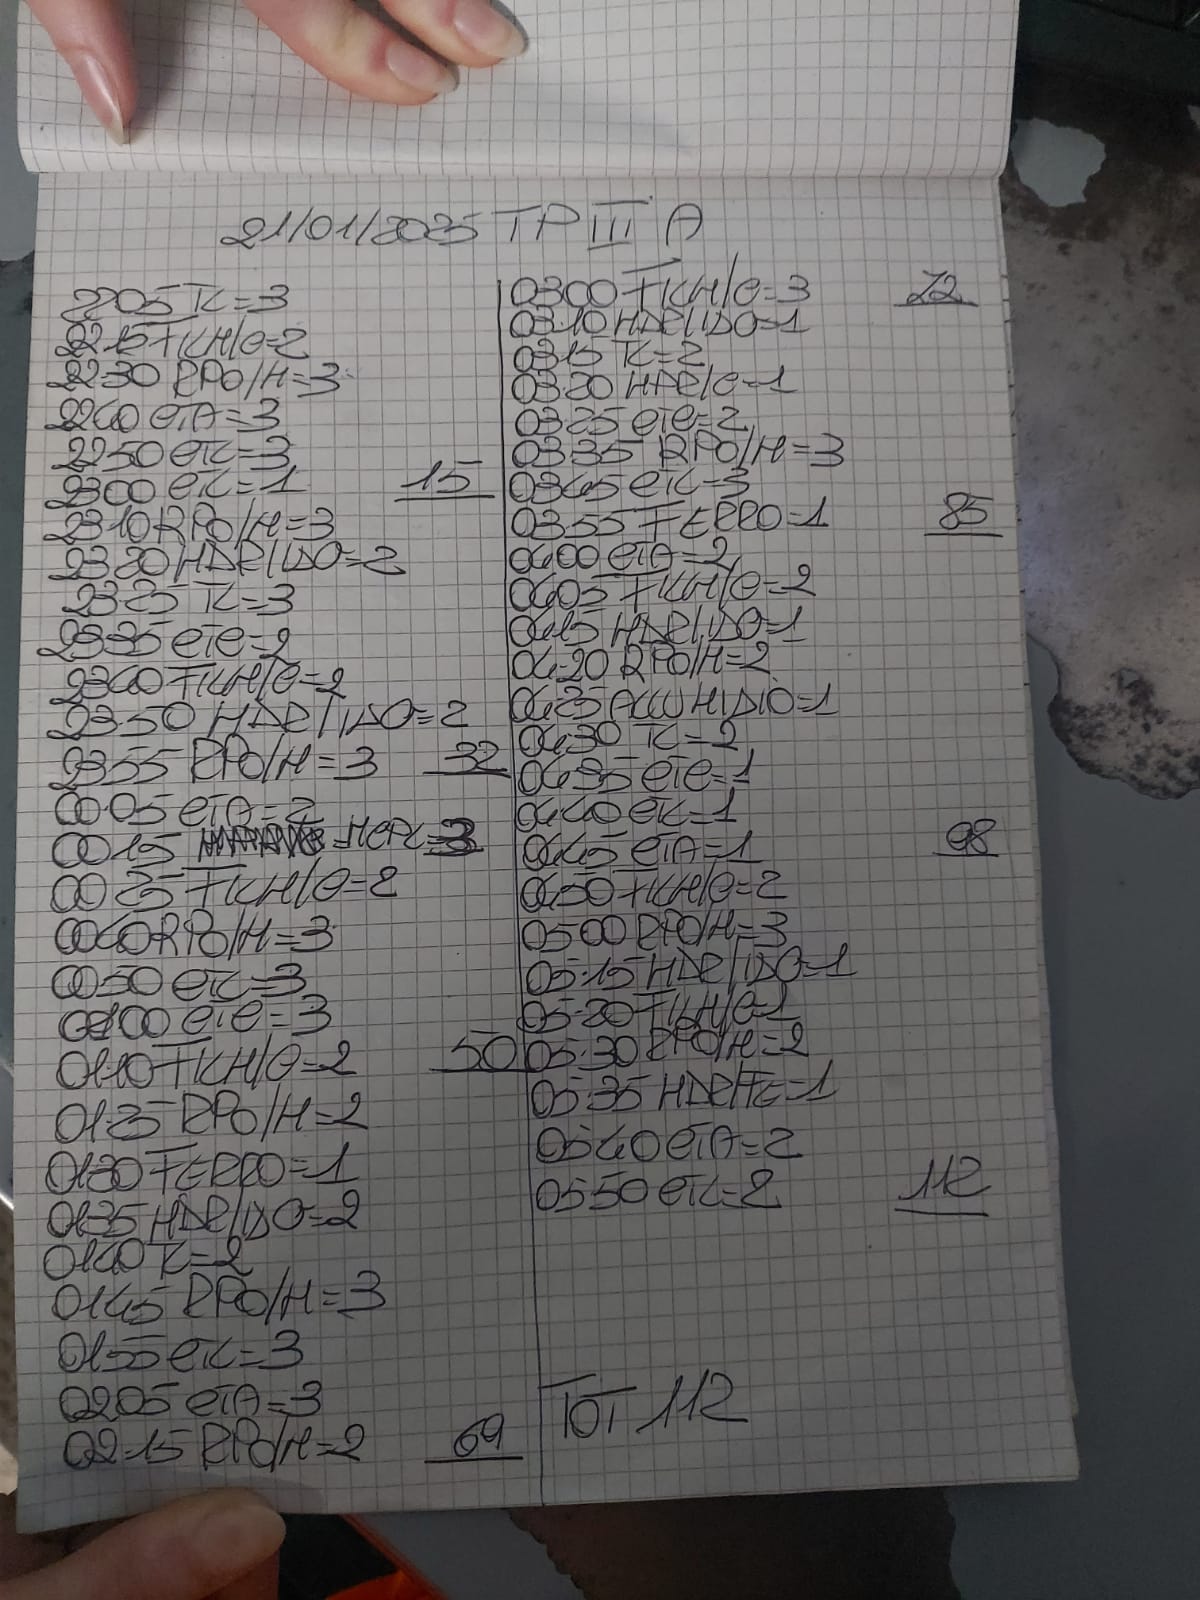 21/01/2025 TP III A
2205 TK=3
2215 TKH/e=2
22:30 RPO/H=3
2240 eTA=3
2250 eTK=3
2300 eK=1 15
2310 RPO/H=3
2320 HDR/IDO=2
2325 TK=3
2335 eTe=2
2340 TKH/e=2
2350 HDR/IDO=2
2355 RPO/H=3 32
00:05 eTA=2
0015 HePK=3
0025 TKH/e=2
0040 RPO/H=3
0050 eTK=3
0100 eTe=3
01:10 TKH/e=2 50
01:25 RPO/H=2
0130 TERRO=1
0135 HDR/IDO=2
0140 TK=2
0145 RPO/H=3
0155 eTK=3
0205 eTA=3
02:15 RPO/H=2 69
0300 TKH/e=3 72
03:10 HDR/IDO=1
0315 TK=2
03:20 HDR/e=1
0325 eTe=2
0335 RPO/H=3
0345 eTK=3
0355 TERRO=1 85
0400 eTA=2
0405 TKH/e=2
0415 HDR/IDO=1
04:20 RPO/H=2
0425 =1
0430 TK=2
0435 eTe=1
0440 eK=1
0445 eTA=1 98
0450 TKH/e=2
0500 RPO/H=3
05:15 HDR/IDO=1
05:20 TKH/e=1
05:30 RPO/H=2
05:35 HDR/TE=1
0540 eTA=2
0550 eTK=2 112
TOT 112